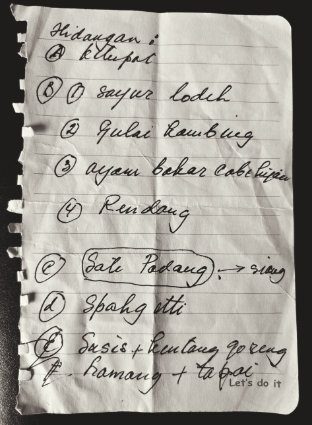 Hidangan :
A Ketupat
B 1 Sayur lodeh
2 Gulai Kambing
3 ayam bakar cabe hijau
4 Rendang
C Sate Padang → siang
d Spahgetti
E Sosis + kentang goreng
F Lamang + tapai
Let's do it